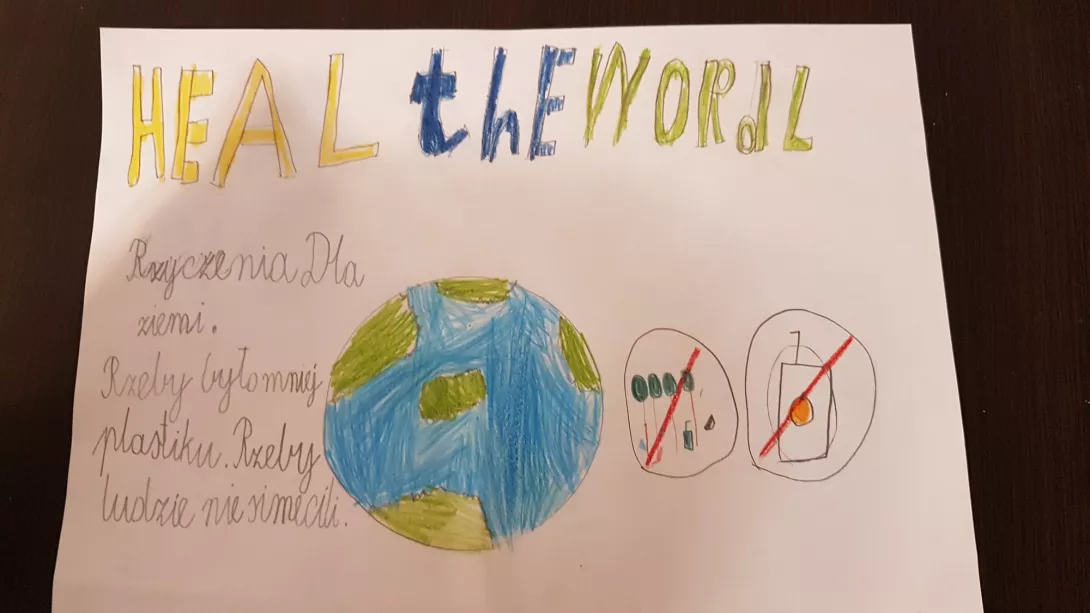 HEAL thE WORdL
Rzyczenia Dla
ziemi.
Rzeby było mniej
plastiku. Rzeby
ludzie nie simecili.